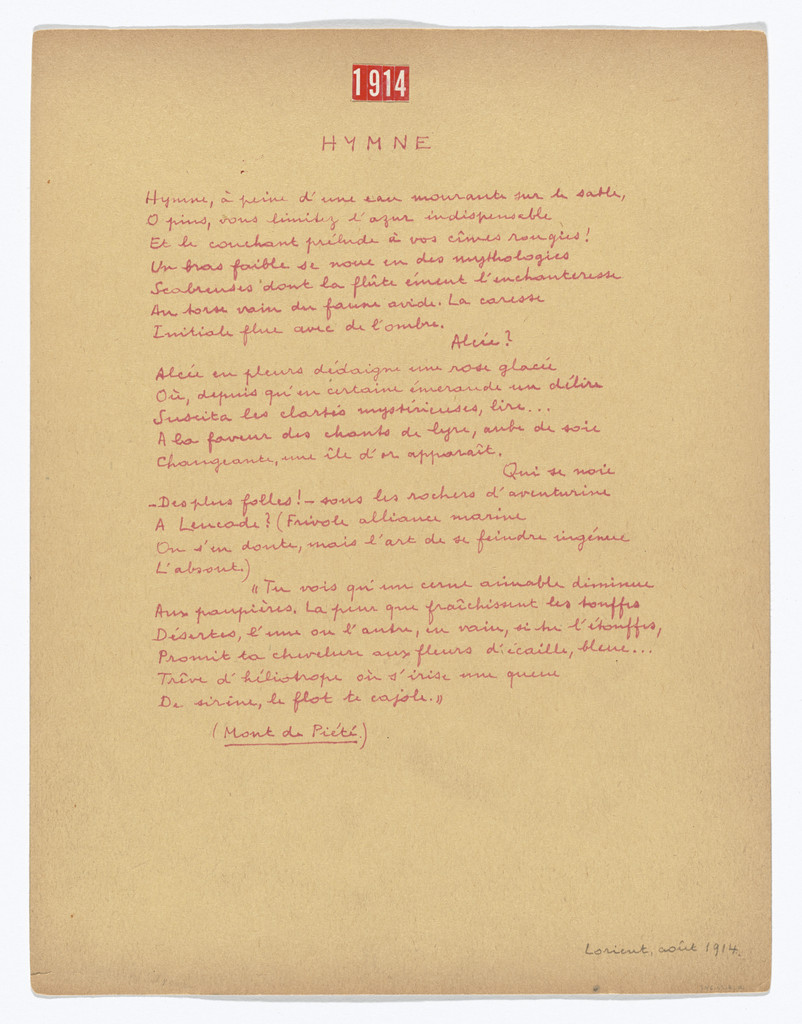 1914
HYMNE
Hymne, à peine d'une eau mourante sur le sable,
O pins, vous limitez l'azur indispensable
Et le couchant prélude à vos cîmes rougies !
Un bras faible se noue en des mythologies
Scabreuses dont la flûte émeut l'enchanteresse
Au torse vain du faune avide. La caresse
Initiale flue avec de l'ombre.
Alcée ?
Alcée en pleurs dédaigne une rose glacée
Où, depuis qu'en certaine émeraude un délire
Suscita les clartés mystérieuses, lire...
A la faveur des chants de lyre, aube de soie
Changeante, une île d'or apparaît.
Qui se noie
– Des plus folles ! – sous les rochers d'aventurine
A Leucade ? (Frivole alliance marine
On s'en doute, mais l'art de se feindre ingénue
L'absout.)
"Tu vois qu'un cerne aimable diminue
Aux paupières. La peur que fraîchissent les touffes
Désertes, l'une ou l'autre, en vain, si tu l'étouffes,
Promit ta chevelure aux fleurs d'écaille, bleue...
Trêve d'héliotrope où s'irise une queue
De sirène, le flot te cajole."
(Mont de Piété.)
Lorient, août 1914.